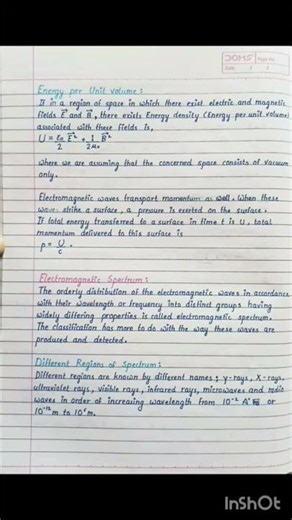 DOMS
Page No.
Date
Energy per Unit volume :
If in a region of space in which there exist electric and magnetic
fields E⃗ and B⃗, there exists Energy density (Energy per unit volume)
associated with these fields is,
U = ε₀/2 E⃗² + 1/2μ₀ B⃗²
where we are assuming that the concerned space consists of vacuum
only.
Electromagnetic waves transport momentum as well. When these
waves strike a surface, a pressure is exerted on the surface.
If total energy transferred to a surface in time t is U, total
momentum delivered to this surface is
p = U/c .
Electromagnetic Spectrum :
The orderly distribution of the electromagnetic waves in accordance
with their wavelength or frequency into distinct groups having
widely differing properties is called electromagnetic spectrum.
The classification has more to do with the way these waves are
produced and detected.
Different Regions of Spectrum :
Different regions are known by different names ; γ-rays, X-rays,
ultraviolet rays, visible rays, infrared rays, microwaves and radio
waves in order of increasing wavelength from 10⁻² A° or
10⁻¹² m to 10⁶ m.
InShOt